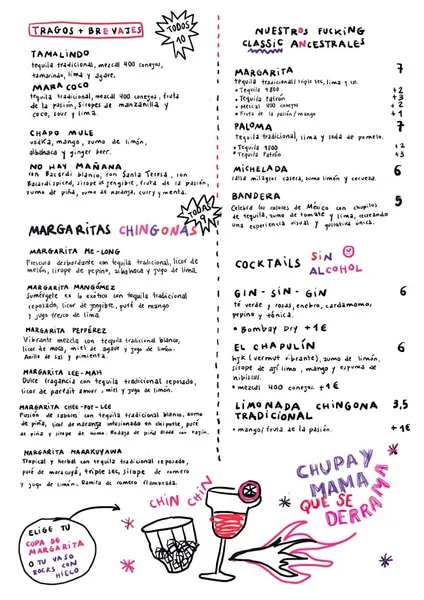 TRAGOS + BREVAJES
TODOS
10
TAMALINDO
tequila tradicional, mezcal 400 conejos,
tamarindo, lima y agave.
MARACOCO
tequila tradicional, mezcal 400 conejos, fruta
de la pasión, siropes de manzanilla y
coco, sour y lima.
CHAPO MULE
vodka, mango, zumo de limón,
albahaca y ginger beer.
NO HAY MAÑANA
ron Bacardi blanco, ron Santa Teresa, ron
Bacardi spiced, sirope de jengibre, fruta de la pasión,
zumo de piña, zumo de naranja, curry y menta.
MARGARITAS CHINGONAS
TODAS
9
MARGARITA ME-LONG
Frescura desbordante con tequila tradicional, licor de
melón, sirope de pepino, albahaca y jugo de lima.
MARGARITA MANGÓMEZ
Sumérgete en lo exótico con tequila tradicional
reposado, licor de jengibre, puré de mango
y jugo fresco de lima.
MARGARITA PEPPÉREZ
Vibrante mezcla con tequila tradicional blanco,
licor de mora, miel de agave y jugo de limón.
Anillo de sal y pimienta.
MARGARITA LEE-MAH
Dulce fragancia con tequila tradicional reposado,
licor de parfait amour, miel y jugo de limón.
MARGARITA CHEE-POT-LEE
Fusión de sabores con tequila tradicional blanco, zumo
de piña, licor de naranja infusionado en chipotle, puré
de piña y sirope de humo. Rodaja de piña
MARGARITA MARAKUYAWA
Tropical y herbal con tequila tradicional reposado,
puré de maracuyá, triple sec, sirope de romero
y jugo de limón. Ramita de romero flameada.
ELIGE TU
COPA DE
MARGARITA
O TU VASO
ROCKS CON
HIELO
CHIN CHIN
NUESTROS FUCKING
CLASSIC ANCESTRALES
MARGARITA 7
tequila tradicional, triple sec, lima y sal.
• Tequila 1800 +2
• Tequila Patrón +3
• Mezcal 400 conejos +2
• Fruta de la pasión/mango +1
PALOMA 7
tequila tradicional, lima y soda de pomelo.
• Tequila 1800 +2
• Tequila Patrón +3
MICHELADA 6
salsa milagros casera, zumo limón y cerveza.
BANDERA 5
Celebra los colores de México con chupitos
de tequila, zumo de tomate y lima, recreando
una experiencia visual y gustativa única.
COCKTAILS SIN
ALCOHOL
GIN-SIN-GIN 6
té verde y rosas, enebro, cardamomo,
pepino y tónica.
• Bombay Dry +1€
EL CHAPULÍN 6
(vermut vibrante), zumo de limón,
sirope de ají limo, mango y espuma de
hibiscus.
• mezcal 400 conejos. +1€
LIMONADA CHINGONA 3,5
TRADICIONAL
• mango/fruta de la pasión. +1€
CHUPA Y
MAMA
QUE SE
DERRAMA